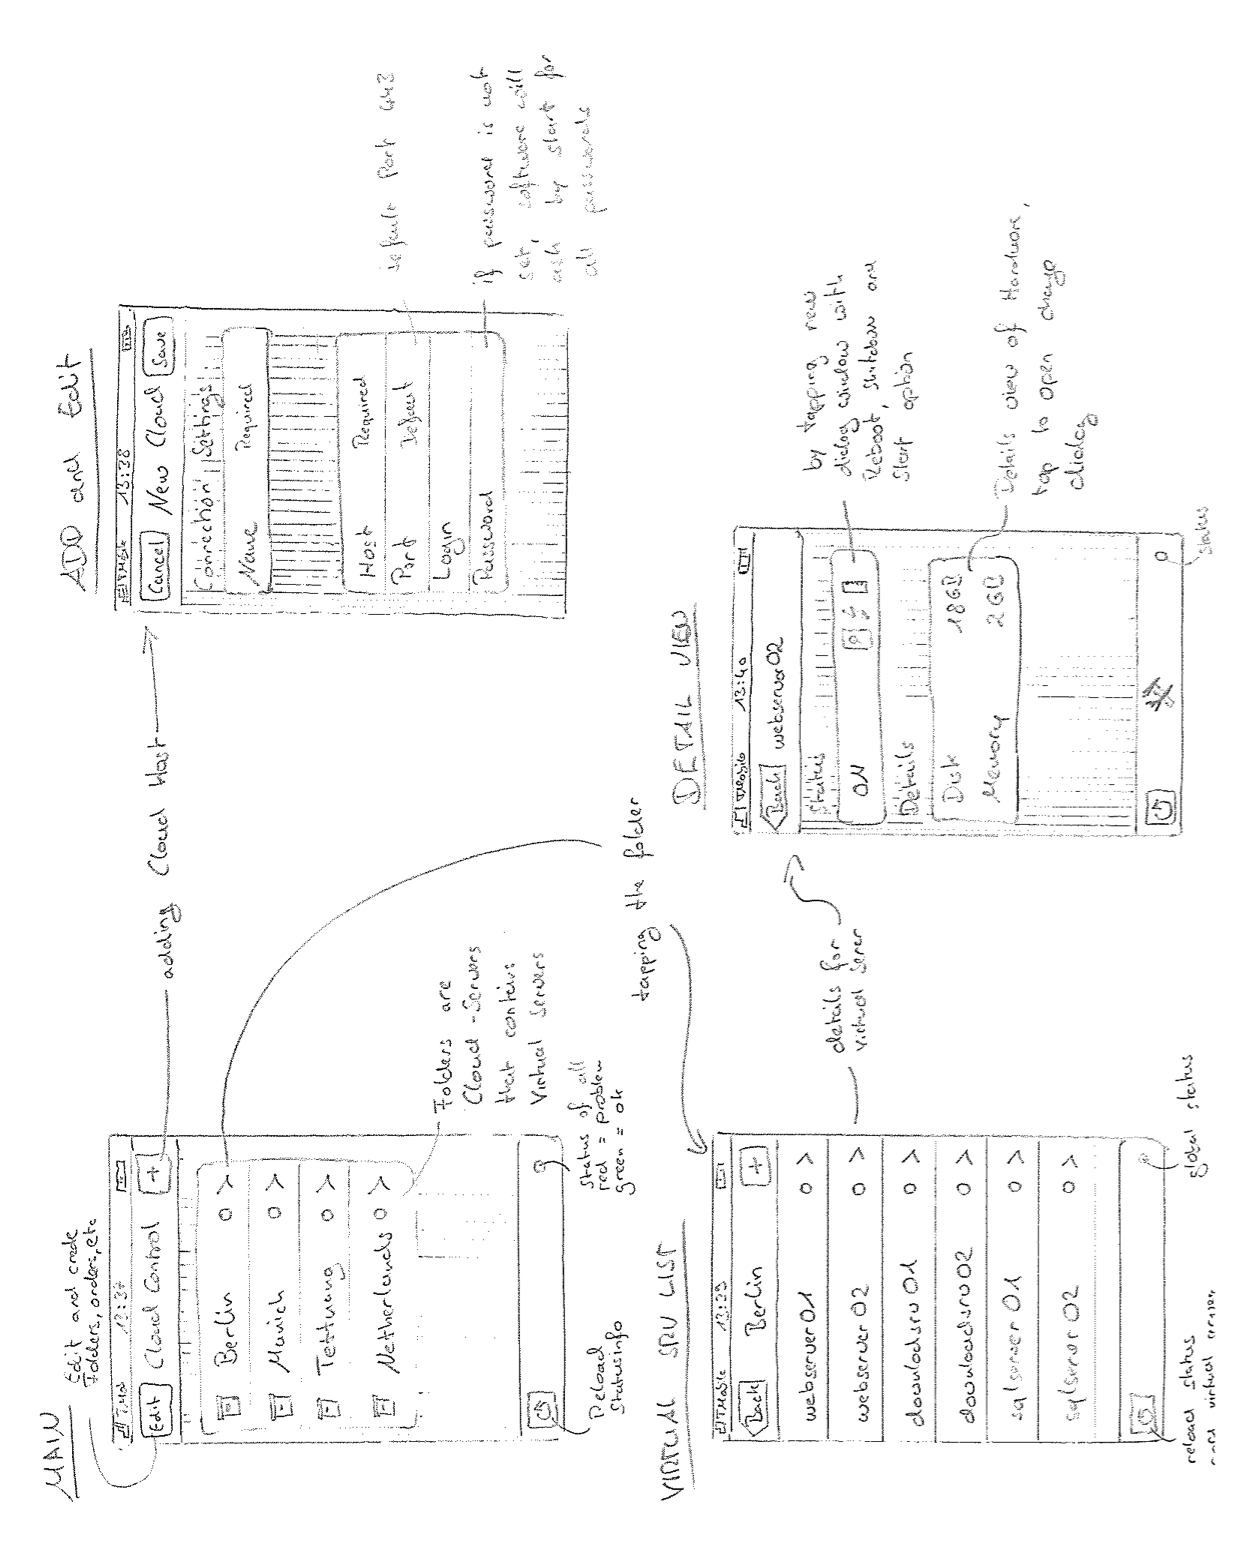 MAIN
Edit and create
Folders, orders, etc
13:37
Edit
Cloud Control
+
Berlin O >
Munich O >
Tettnang O >
Netherlands O >
Reload
Statusinfo
Status of all
red = problem
green = ok
Folders are
Cloud-Servers
that contains
Virtual Servers
adding Cloud Host
ADD and Edit
TMobile 13:38
Cancel
New Cloud
Save
Connection Settings
Name Required
Host Required
Port Default
Login
Password
default Port 443
if password is not
set, software will
ask by start for
all passwords
tapping the folder
VIRTUAL SRV LIST
TMobile 13:39
Back
Berlin
+
webserver01 O >
webserver02 O >
downloadsrv01 O >
downloadsrv02 O >
sqlserver01 O >
sqlserver02 O >
reload status
virtual
global status
details for
virtual Server
DETAIL VIEW
TMobile 13:40
Back
webserver02
Status
ON
Details
Disk 18GB
Memory 2GB
status
by tapping new
dialog window with
Reboot, shutdown and
Start option
Details view of Hardware,
tap to open change
dialog